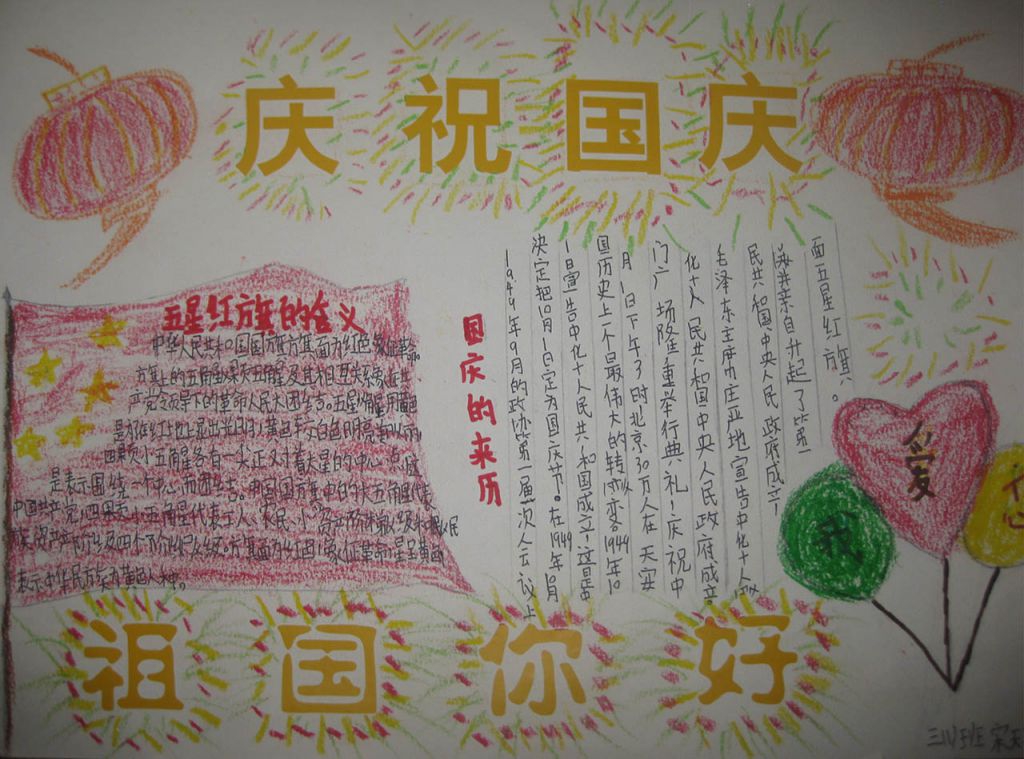 庆祝国庆
五星红旗的含义
中华人民共和国国旗旗面为红色象征革命。
旗上的五角星及其相互关系象征共
产党领导下的革命人民大团结。五星用黄色
是为在红地上显出光明!黄色较白色明亮美丽
四颗小五角星各有一尖正对着大星的中心点
是表示围绕一个中心而团结。中国国旗中的大五角星代表
中国共产党!四颗小五角星代表工人、农民、小资产阶级
四个阶级。旗面为红色!象征革命!星呈黄色
表示中华民族为黄色人种。
国庆的来历
1949年9月的政协第一届一次人会议上
决定把10月1日定为国庆节。在1949年10月
1日宣告中华人民共和国成立!这是中
国历史上不最伟大的转变1949年10
月1日下午3时北京30万人在天安
门广场隆重举行典礼!庆祝中
华人民共和国中央人民政府成立。
毛泽东主席庄严地宣告中华人
民共和国中央人民政府成立!
并亲自升起了第一
面五星红旗。
我
爱
祖国你好